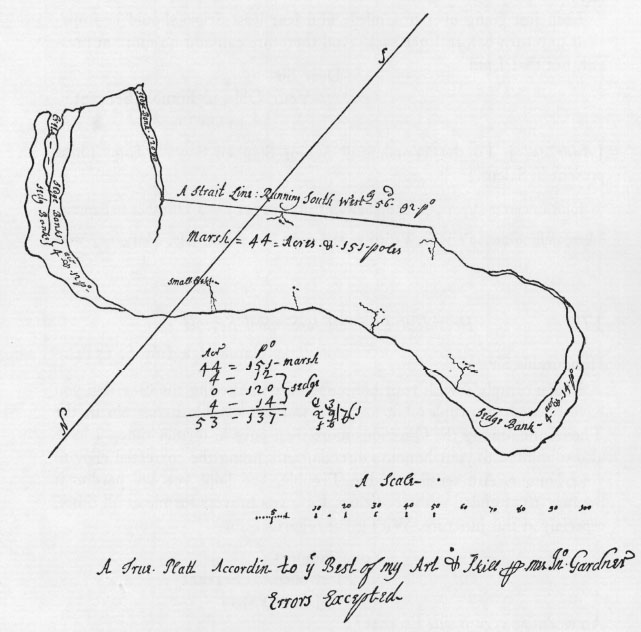 S
A Strait Line: Running South West 56d 92 po
Marsh = 44 = Acres & 151 poles
Small
Sedge Bank
Acr po
44 = 151 - marsh
4 - 12
0 - 120 } sedge
4 - 14
53 - 137 -
Sedge Bank - 4
N
A Scale
5 10 20 30 40 50 60 70 80 90 100
A True Platt Accordin to ye Best of my Art & Skill p me Jno Gardner
Errors Excepted